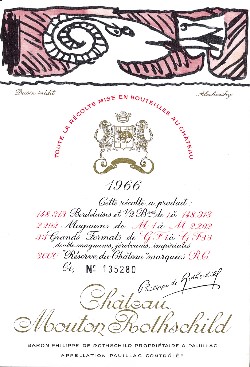 Dessin inédit
Alechinsky
TOUTE LA RÉCOLTE MISE EN BOUTEILLES AU CHÂTEAU
1966
Cette récolte a produit:
148.313 Bordelaises et 1/2 Bses de 1 à 148.313
2.202 Magnums de M 1 à M 2.202
Grands Formats de G F 1 à G F
double-magnums, jéroboams, impériales
Réserve du Château marqués R.C.
Ce, No 135280
Château
Mouton Rothschild
BARON PHILIPPE DE ROTHSCHILD PROPRIÉTAIRE A PAUILLAC
APPELLATION PAUILLAC CONTROLÉE